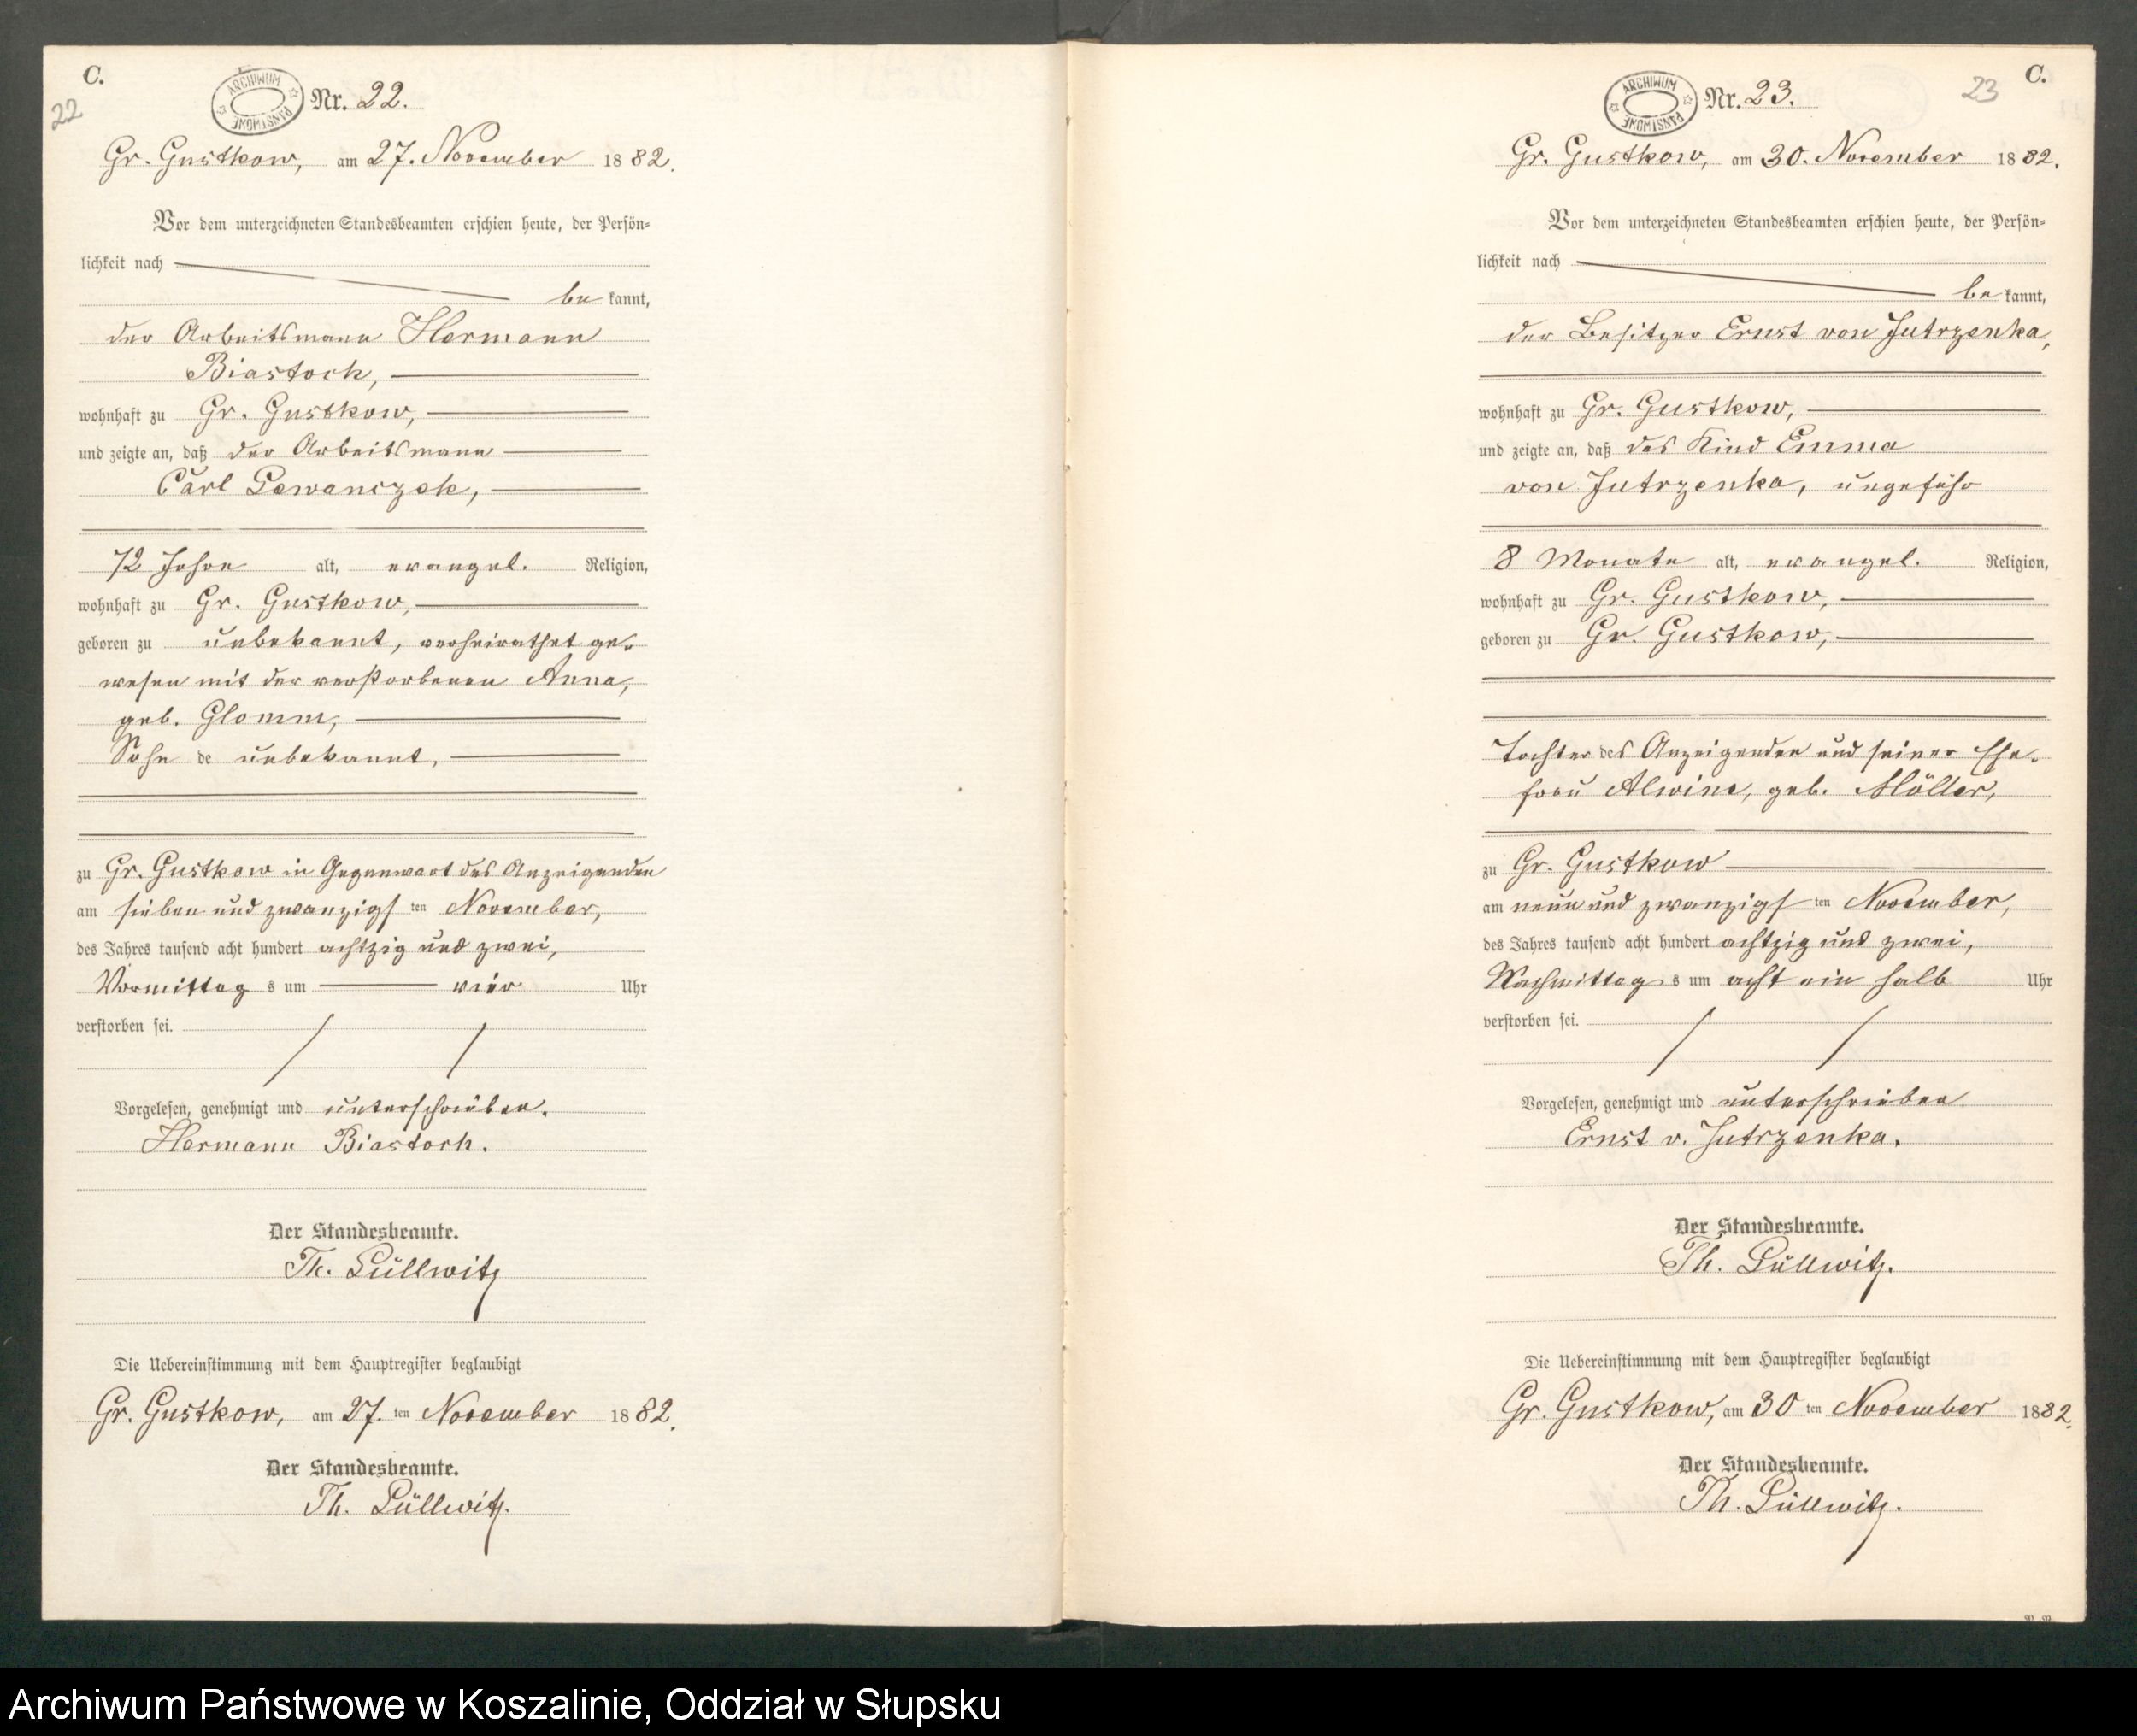 C.
22
ARCHIWUM PAŃSTWOWE
Nr. 22.
Gr. Gustkow, am 27. November 1882.
Vor dem unterzeichneten Standesbeamten erschien heute, der Persön-
lichkeit nach
be kannt,
der Arbeitsmann Hermann
Biastoch,
wohnhaft zu Gr. Gustkow,
und zeigte an, daß der Arbeitsmann
Carl Lewanczek,
72 Jahre alt, evangel. Religion,
wohnhaft zu Gr. Gustkow,
geboren zu unbekannt, verheirathet ge-
wesen mit der verstorbenen Anna,
geb. Glomm,
Sohn de unbekannt,
zu Gr. Gustkow in Gegenwart des Anzeigenden
am sieben und zwanzigs ten November,
des Jahres tausend acht hundert achtzig und zwei,
Vormittag s um vier Uhr
verstorben sei.
Vorgelesen, genehmigt und unterschrieben.
Hermann Biastoch.
Der Standesbeamte.
Th. Lüllwitz
Die Uebereinstimmung mit dem Hauptregister beglaubigt
Gr. Gustkow, am 27. ten November 1882.
Der Standesbeamte.
Th. Lüllwitz.
C.
23
ARCHIWUM PAŃSTWOWE
Nr. 23.
Gr. Gustkow, am 30. November 1882.
Vor dem unterzeichneten Standesbeamten erschien heute, der Persön-
lichkeit nach
be kannt,
der Besitzer Ernst von Jutrzenka,
wohnhaft zu Gr. Gustkow,
und zeigte an, daß das Kind Emma
von Jutrzenka, ungefähr
8 Monate alt, evangel. Religion,
wohnhaft zu Gr. Gustkow,
geboren zu Gr. Gustkow,
Tochter des Anzeigenden und seiner Ehe-
frau Alwine, geb. Möller,
zu Gr. Gustkow
am neun und zwanzigs ten November,
des Jahres tausend acht hundert achtzig und zwei,
Nachmittag s um acht ein halb Uhr
verstorben sei.
Vorgelesen, genehmigt und unterschrieben.
Ernst v. Jutrzenka.
Der Standesbeamte.
Th. Lüllwitz.
Die Uebereinstimmung mit dem Hauptregister beglaubigt
Gr. Gustkow, am 30 ten November 1882.
Der Standesbeamte.
Th. Lüllwitz.
Archiwum Państwowe w Koszalinie, Oddział w Słupsku